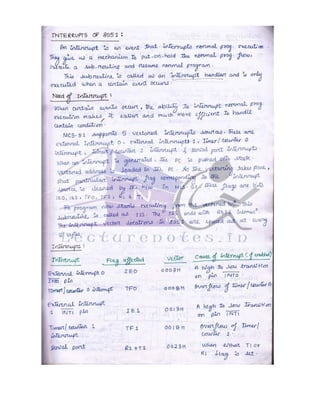 INTERRUPTS OF 8051:
An interrupt is an event that interrupts normal prog. execution
They give us a mechanism to put-on-hold the normal prog. flow,
a sub-routine and resume normal program.
This subroutine is called as an interrupt handler and is only
executed when a certain event occurs.
Need of Interrupt:
When certain events occurs, the ability to interrupt normal prog.
execution makes it easier and much more efficient to handle
certain condition.
MCS-51 supports 5 vectored interrupts sources. These are
external interrupt 0, external interrupt 1, timer/counter 0
interrupt, timer/counter 1 interrupt & serial port interrupts
When an interrupt is generated, the PC is pushed onto stack
vectored address is loaded in PC. As the vectoring takes place,
that particular interrupt flag corresponding to the interrupt
source is cleared by
IE0, IE1, TF0, TF1, RI &
The program now starts executing from the
subroutine is called as ISR. The ISR ends with RETI
The interrupt vector locations in 8051 are spaced out at every
Lecturenotes.in
Interrupts:
Interrupt Flag affected Vector Cause of interrupt (if enabled)
External Interrupt 0 IE0 0003H A high to low transition
pin on pin INT0
Timer/counter 0 interrupt TF0 000BH Overflow of timer/counter 0
External interrupt A high to low transition
1 INT1 pin IE1 0013H on pin INT1
Timer/counter 1 TF1 001BH Overflow of timer/
interrupt counter 1
Serial port RI+TI 0023H when either TI or
RI flag is set.